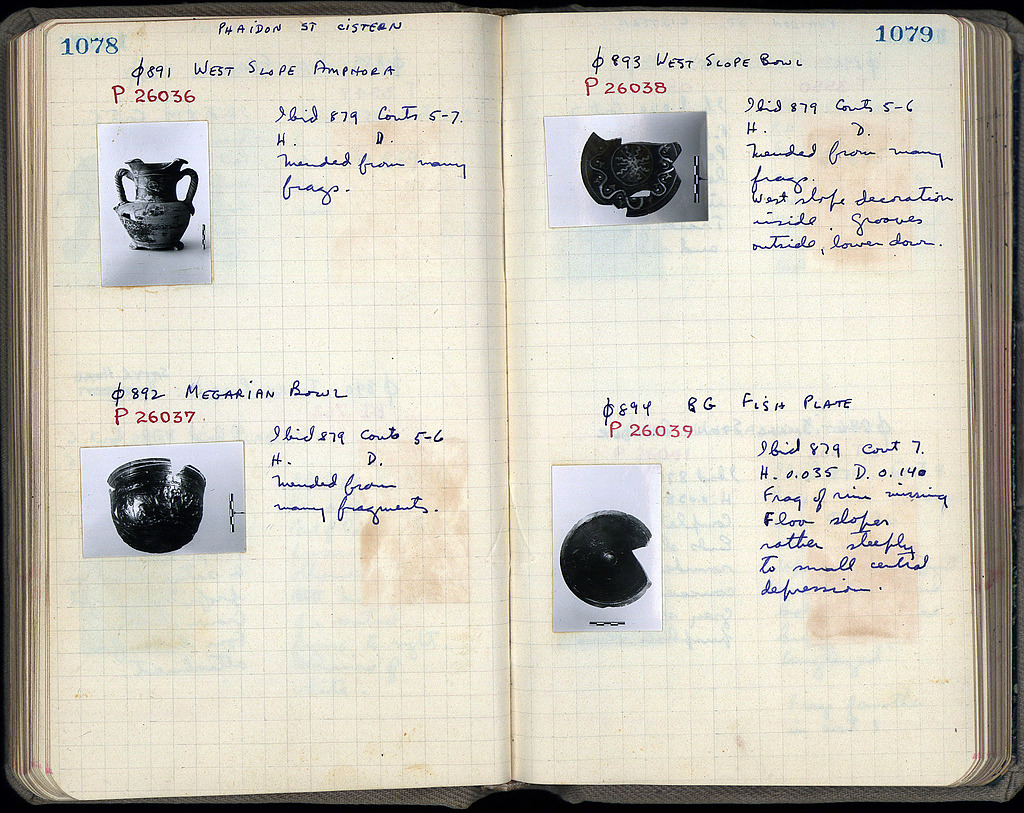 1078
PHAIDON ST CISTERN
φ891 WEST SLOPE AMPHORA
P 26036
Ibid 879 Conts 5-7.
H. D.
Mended from many
frags.
φ892 MEGARIAN BOWL
P 26037
Ibid 879 Conts 5-6
H. D.
Mended from
many fragments.
1079
φ893 WEST SLOPE BOWL
P 26038
Ibid 879 Conts 5-6
H. D.
Mended from many
frags.
West slope decoration
inside. Grooves
outside, lower down.
φ894 BG FISH PLATE
P 26039
Ibid 879 Cont 7.
H. 0.035 D. 0.140
Frag of rim missing
Floor slopes
rather steeply
to small central
depression.